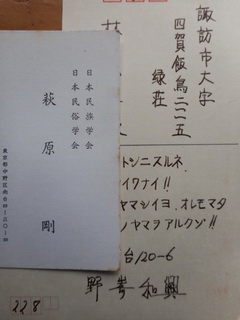 諏訪市大字
四賀飯島二二一五
緑荘
日本民族学会
日本民俗学会
萩原 剛
トシニスルネ
イワナイ!!
ヤマシイヨ、オレモマタ
ノヤマラアルクゾ!!
台120-6
野嵜和興
228